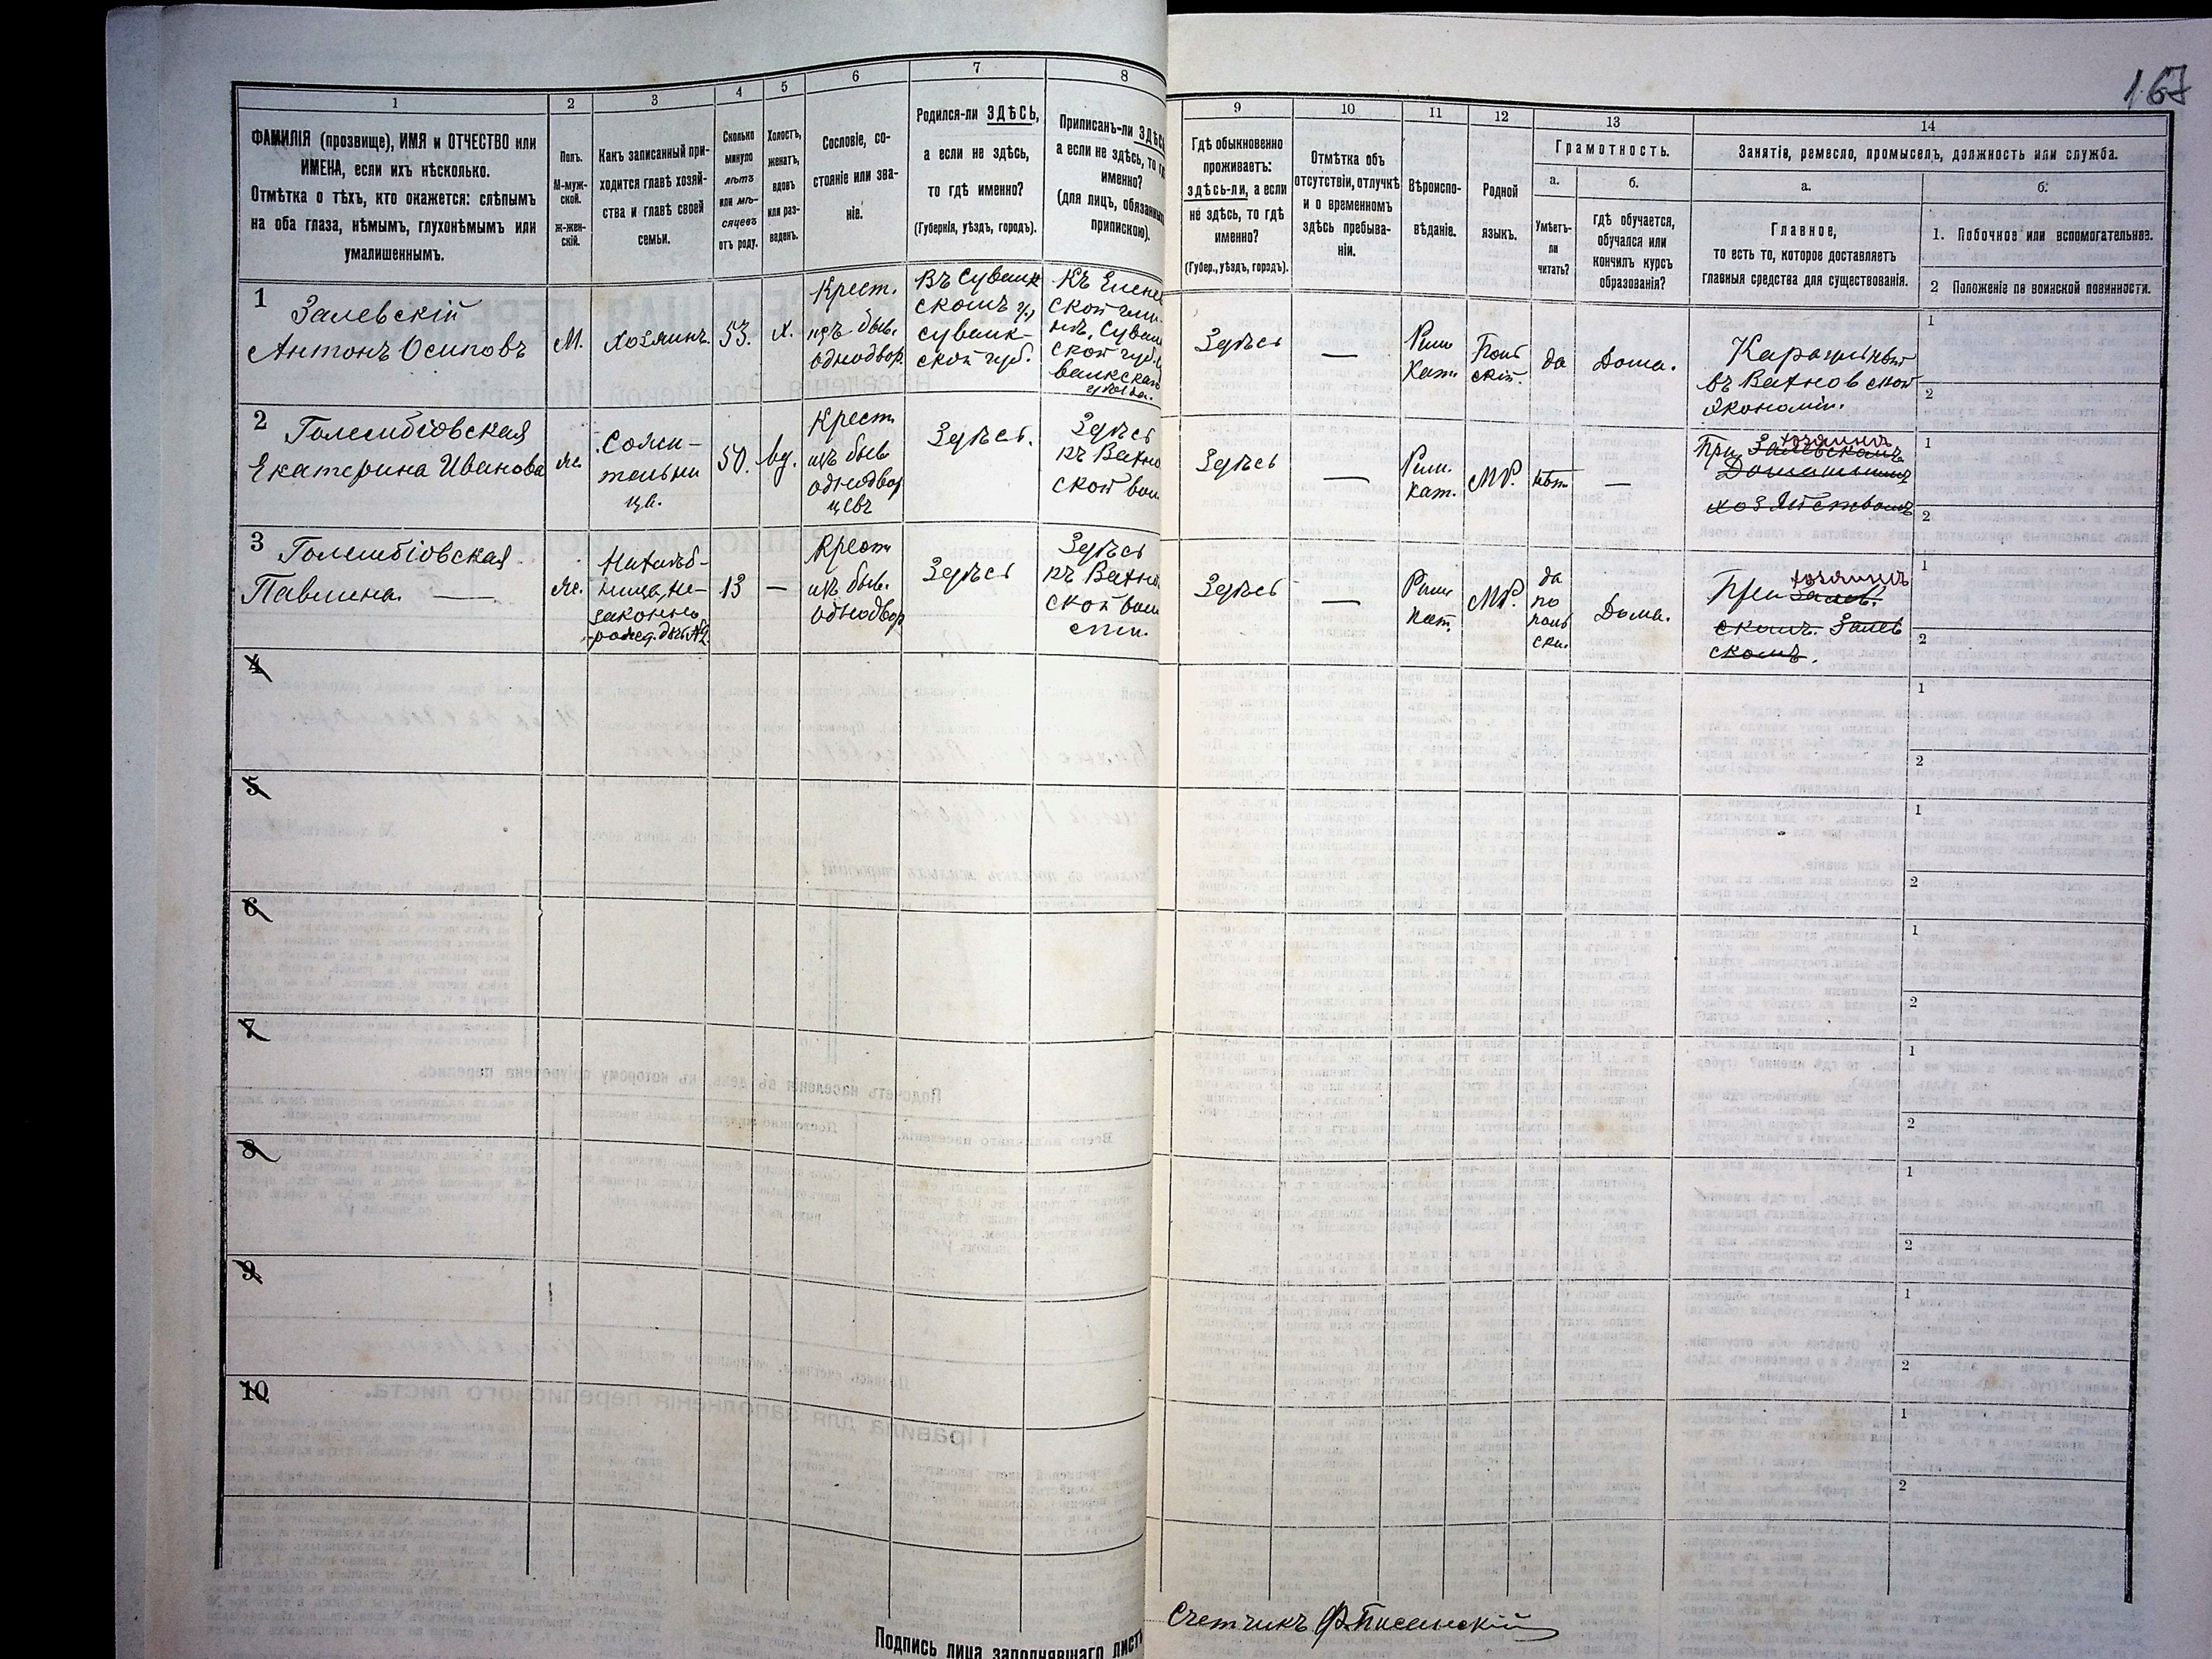 167
1
2
3
4
5
6
7
8
9
10
11
12
13
14
ФАМИЛІЯ (прозвище), ИМЯ и ОТЧЕСТВО или
ИМЕНА, если ихъ нѣсколько.
Отмѣтка о тѣхъ, кто окажется: слѣпымъ
на оба глаза, нѣмымъ, глухонѣмымъ или
умалишеннымъ.
Полъ.
М-муж-
ской.
Ж-жен-
скій.
Какъ записанный при-
ходится главѣ хозяй-
ства и главѣ своей
семьи.
Сколько
минуло
лѣтъ
или мѣ-
сяцевъ
отъ роду.
Холостъ,
женатъ,
вдовъ
или раз-
веденъ.
Сословіе, со-
стояніе или зва-
ніе.
Родился-ли ЗДѢСЬ,
а если не здѣсь,
то гдѣ именно?
(Губернія, уѣздъ, городъ).
Приписанъ-ли ЗДѢСЬ,
а если не здѣсь, то гдѣ
именно?
(для лицъ, обязанныхъ
припискою).
Гдѣ обыкновенно
проживаетъ:
здѣсь-ли, а если
не здѣсь, то гдѣ
именно?
(Губер., уѣздъ, городъ).
Отмѣтка объ
отсутствіи, отлучкѣ
и о временномъ
здѣсь пребыва-
ніи.
Вѣроиспо-
вѣданіе.
Родной
языкъ.
Грамотность.
а.
б.
Умѣетъ-
ли
читать?
гдѣ обучается,
обучался или
кончилъ курсъ
образованія?
Занятія, ремесло, промыселъ, должность или служба.
а.
б.
Главное,
то есть то, которое доставляетъ
главныя средства для существованія.
1. Побочное или вспомогательное.
2 Положеніе по воинской повинности.
1
Залевскій
Антонъ Осиповъ
М.
Хозяинъ.
53.
х.
Крест.
изъ быв.
однодвор.
Въ Сувалк
скомъ у.,
сувалк-
ской губ.
Здѣсь
—
Рим
Кат.
Поль
скій.
да
Дома.
въ
экономіи.
1
2
2
Голембіовская
Екатерина Иванова
ж.
Сожи-
тельни
ца.
50.
вд.
Крест.
изъ быв.
однодвор
цевъ
Здѣсь.
Здѣсь
къ
ской вол.
Здѣсь
—
Рим.
кат.
нѣт
—
При хозяинѣ
Залевскомъ
Домашнимъ
хозяйствомъ
1
2
3
Голембіовская
Павлина. —
ж.
незаконно
рожд. дочь №2
13
—
Крест
изъ быв.
однодвор
Здѣсь
Здѣсь
къ
ской воло
сти.
Здѣсь
—
Рим
кат.
да
по
поль
ски.
Дома.
При хозяинѣ
Залев.
скомъ. Залев
скомъ.
1
2
4
1
2
5
1
2
6
1
2
7
1
2
8
1
2
9
1
2
10
1
2
Подпись лица заполнявшаго листъ
Счетчикъ